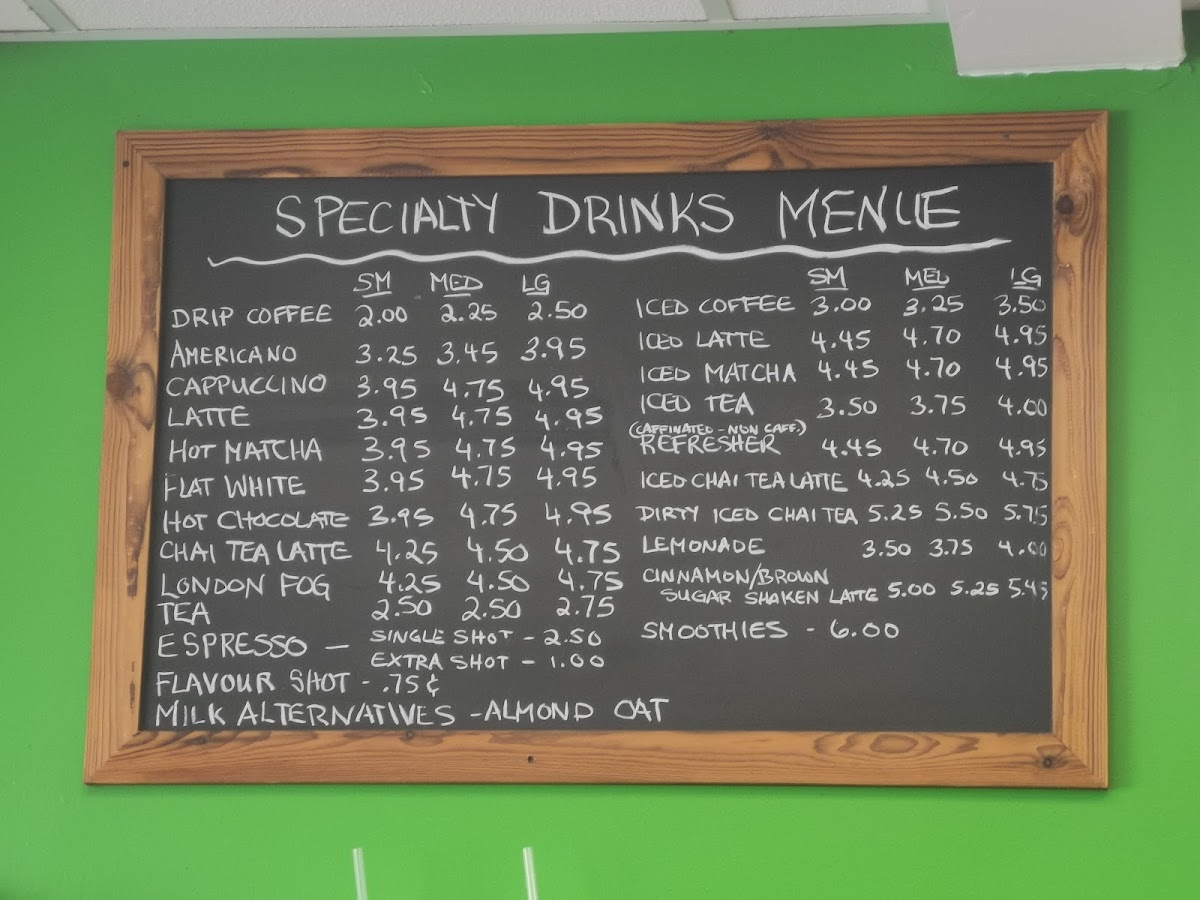 SPECIALTY DRINKS MENUE
SM MED LG
DRIP COFFEE 2.00 2.25 2.50
AMERICANO 3.25 3.45 3.95
CAPPUCCINO 3.95 4.75 4.95
LATTE 3.95 4.75 4.95
HOT MATCHA 3.95 4.75 4.95
FLAT WHITE 3.95 4.75 4.95
HOT CHOCOLATE 3.95 4.75 4.95
CHAI TEA LATTE 4.25 4.50 4.75
LONDON FOG 4.25 4.50 4.75
TEA 2.50 2.50 2.75
ESPRESSO — SINGLE SHOT - 2.50
EXTRA SHOT - 1.00
FLAVOUR SHOT - .75¢
MILK ALTERNATIVES - ALMOND OAT
SM MED LG
ICED COFFEE 3.00 3.25 3.50
ICED LATTE 4.45 4.70 4.95
ICED MATCHA 4.45 4.70 4.95
ICED TEA 3.50 3.75 4.00
(CAFFINATED - NON CAFF.)
REFRESHER 4.45 4.70 4.95
ICED CHAI TEA LATTE 4.25 4.50 4.75
DIRTY ICED CHAI TEA 5.25 5.50 5.75
LEMONADE 3.50 3.75 4.00
CINNAMON/BROWN
SUGAR SHAKEN LATTE 5.00 5.25 5.45
SMOOTHIES - 6.00